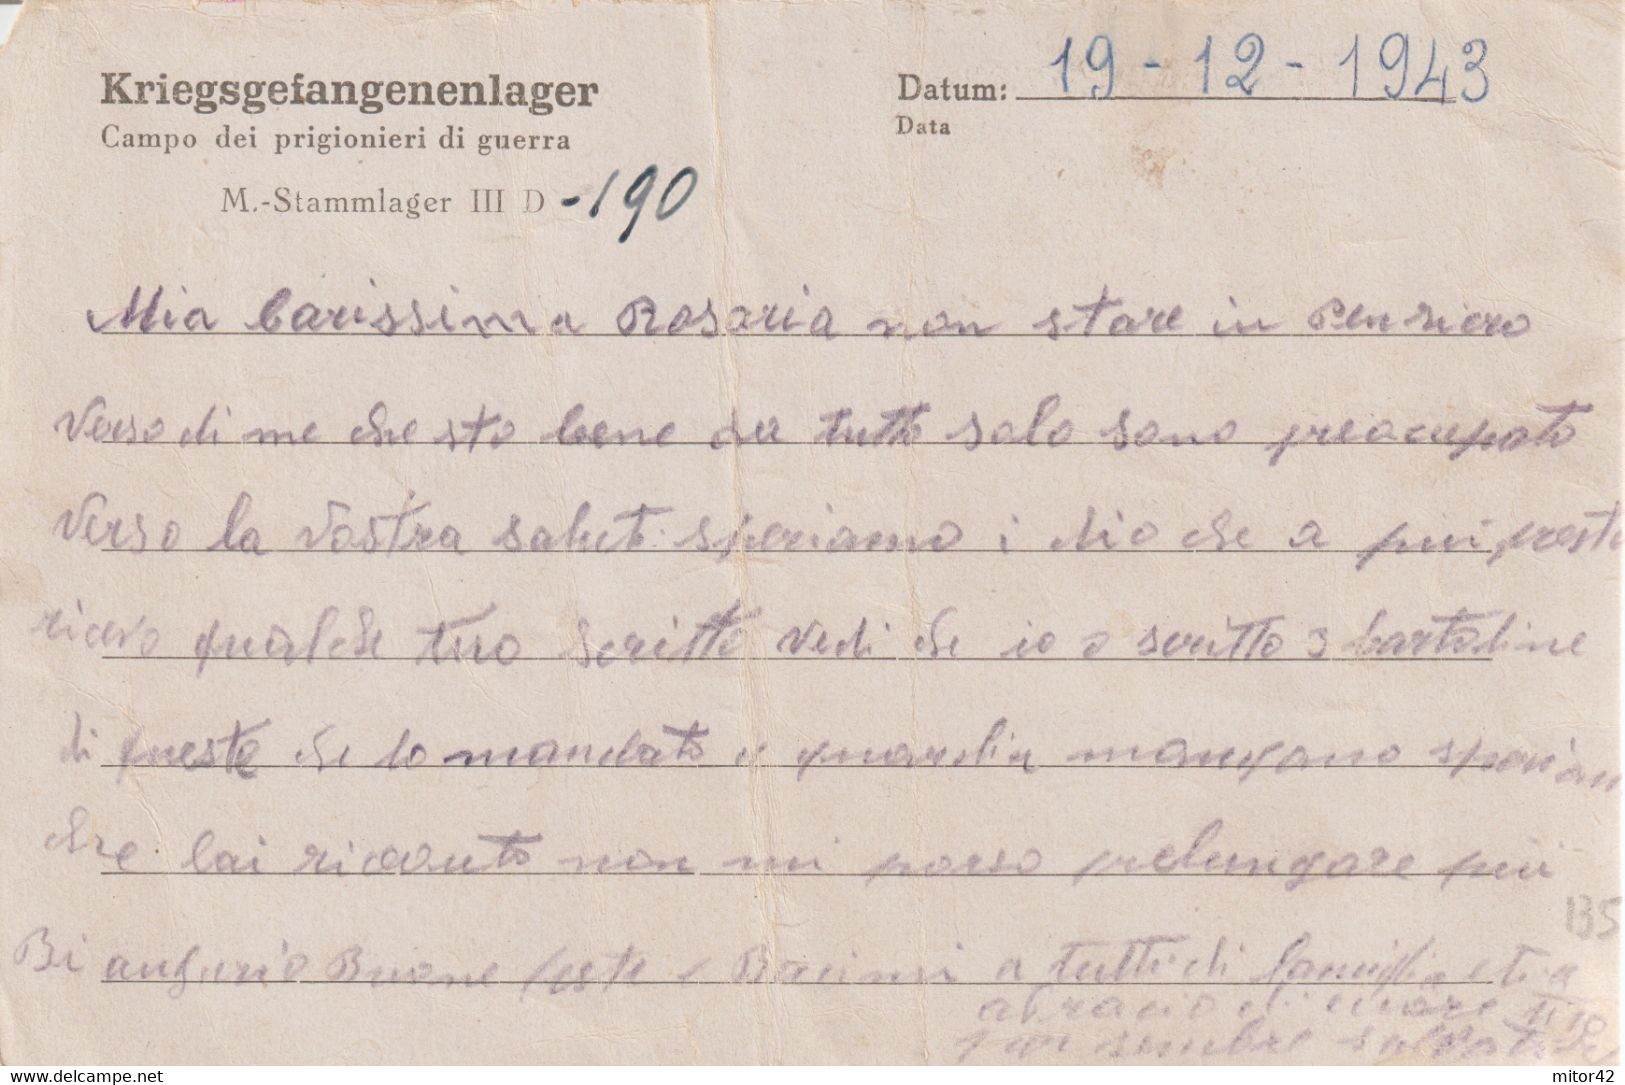 Kriegsgefangenenlager
Campo dei prigionieri di guerra
M.-Stammlager III D -190
Datum: 19-12-1943
Data
Mia Carissima Rosaria non stare in Pensiero
Verso di me che sto bene da tutto solo sono preocupato
Verso la Vostra salute speriamo i Dio che a piu presto
ricevo qualche tuo scritto vedi che io o scritto 3 cartoline
di queste che lo mandato e mandano
che lai ricevuto non mi posso prelungare piu
Bi augurio Buone feste e Bacioni a tutti di famiglia e ti a
abracio di cuore il
sembre Salvatore
135
mitor42